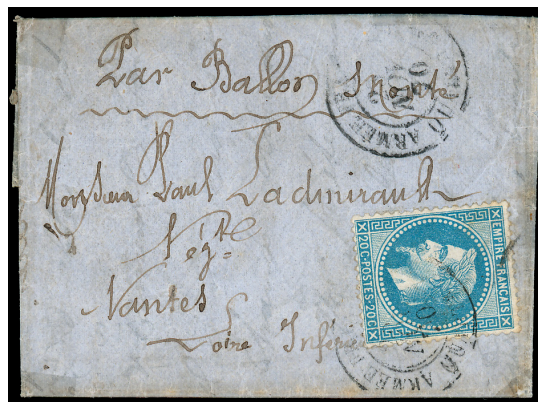 Par Ballon Monté
Monsieur Paul Ladmirault
Négt
Nantes
Loire Infér
EMPIRE FRANCAIS
20C·POSTES·20C
ARMÉE
ARMÉE